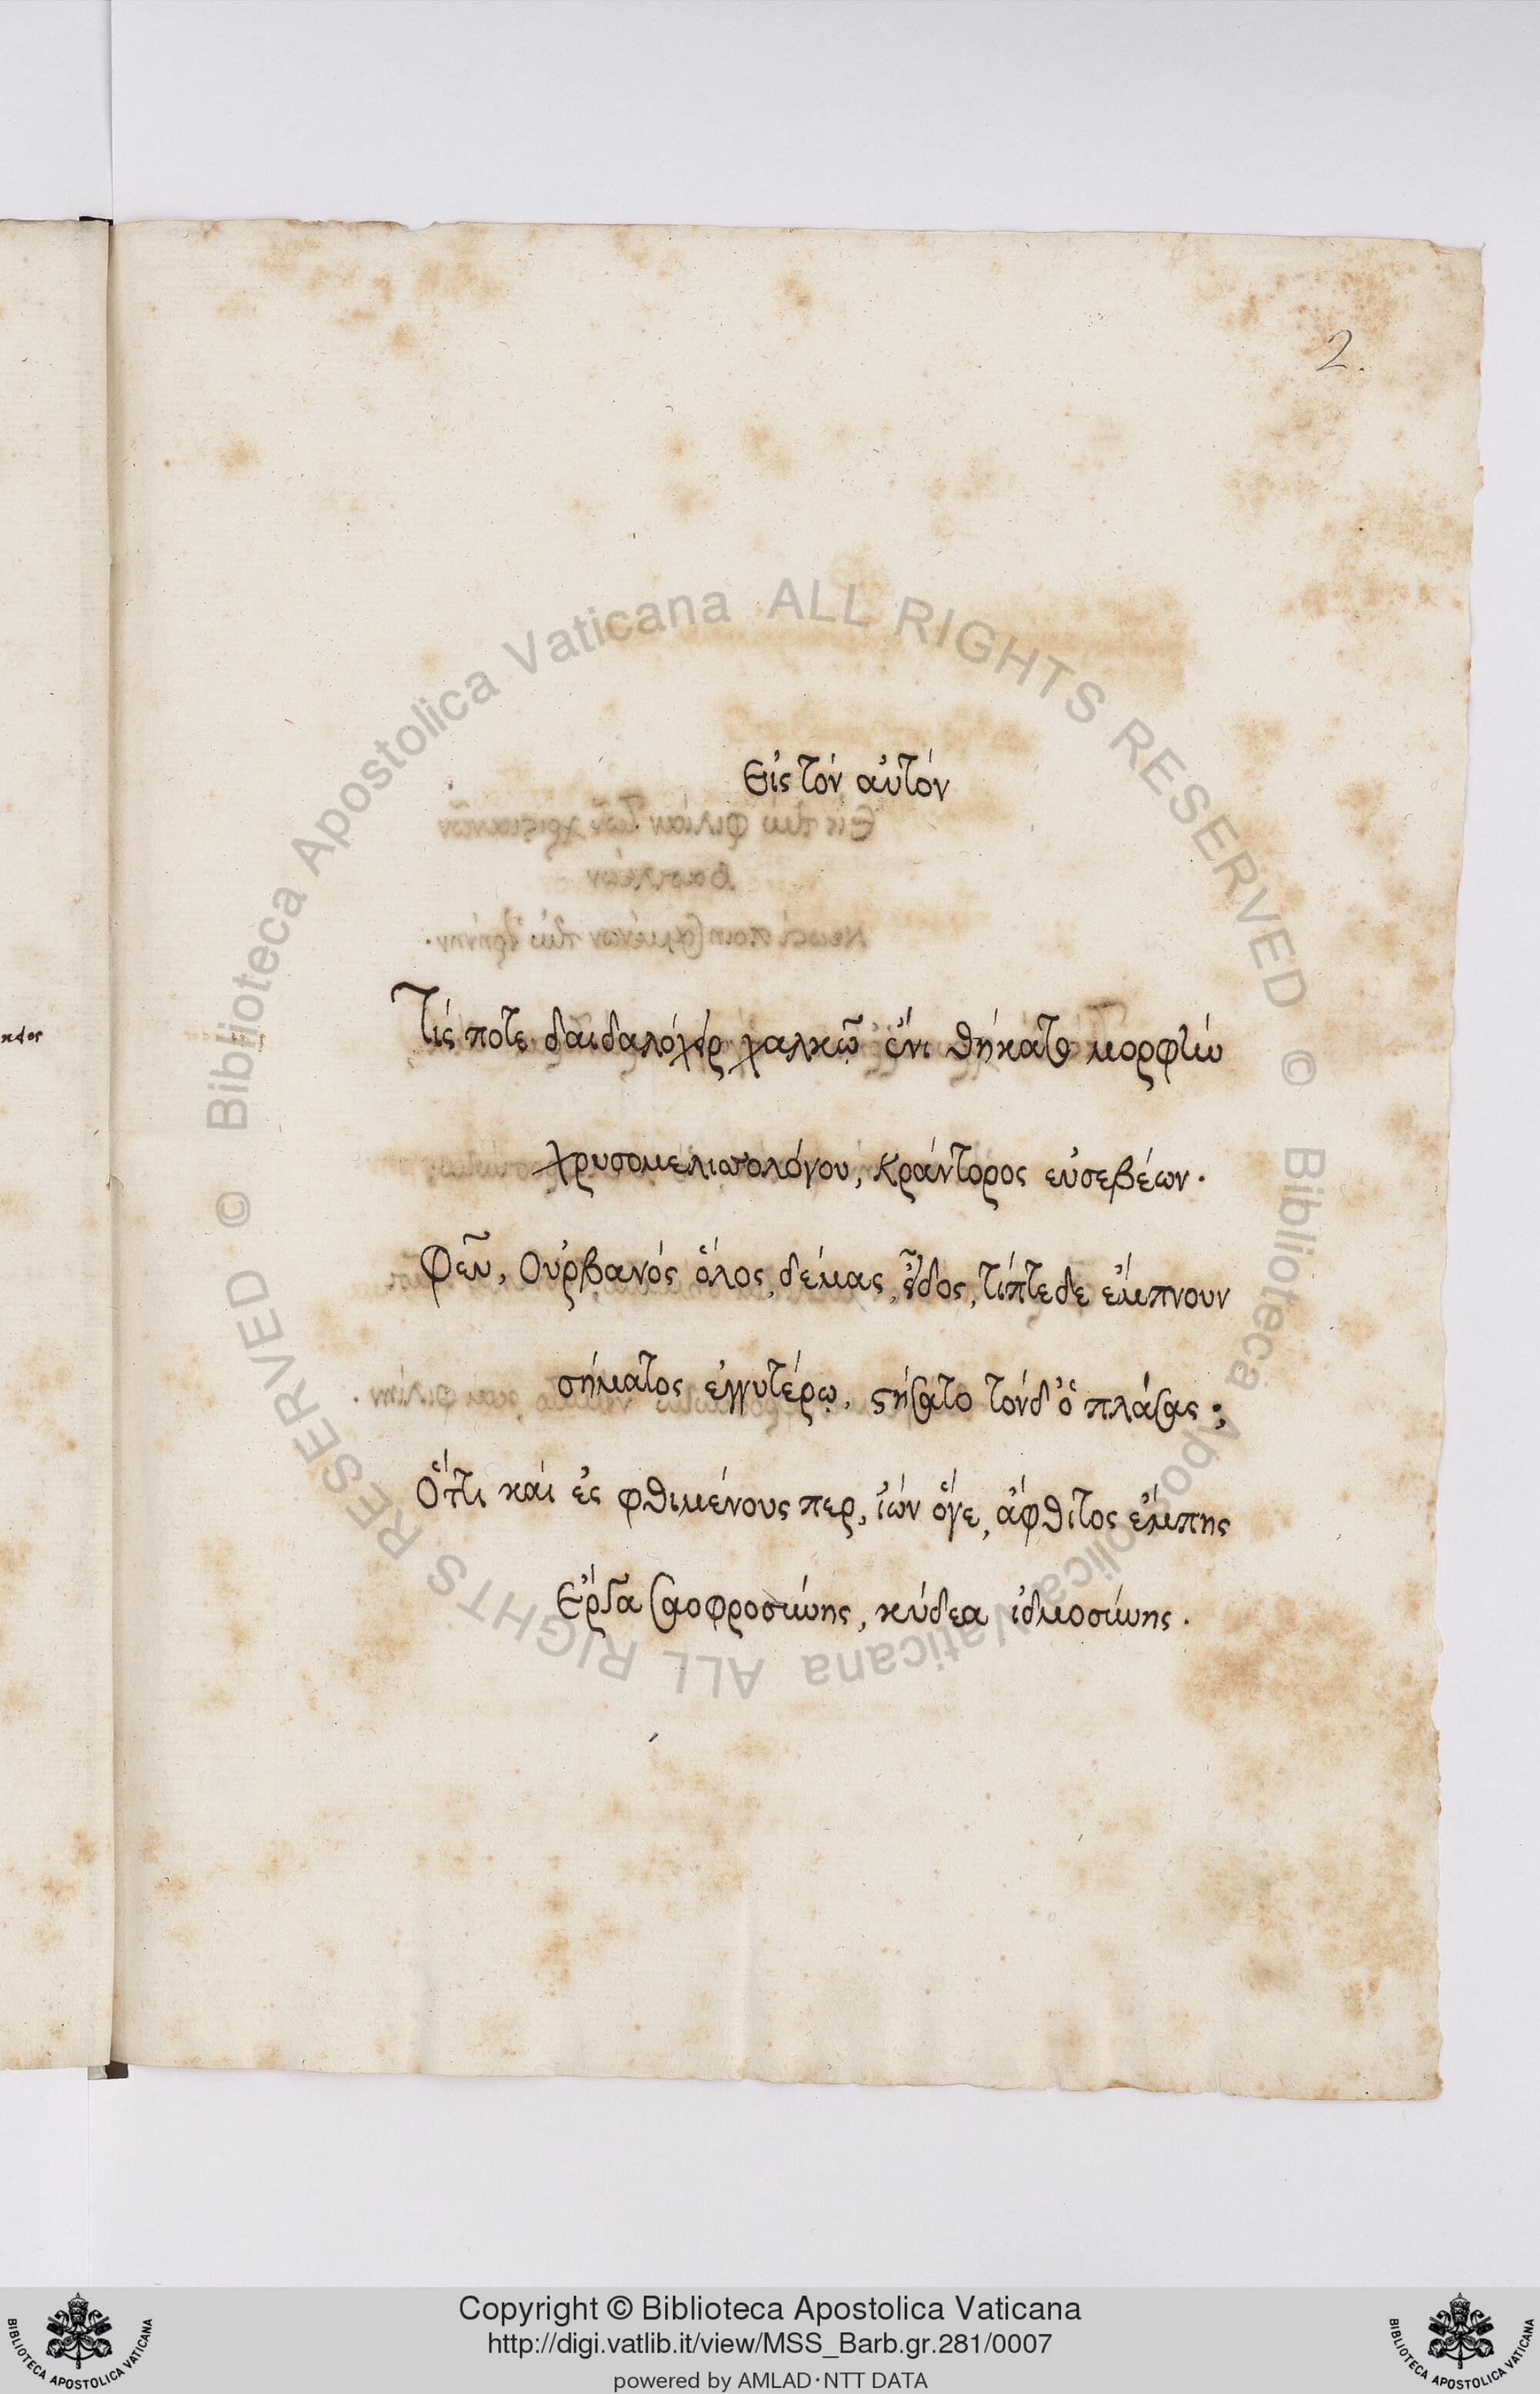 2.
Εἰς τὸν αὐτόν
Τίς ποτε δαιδαλόχειρ χαλκῷ ἔνι θήκατο μορφὴν
χρυσομελισσολόγου, κράντορος εὐσεβέων.
Φεῦ, Οὐρβανός ὅλος, δέμας, εἶδος, τίπτεδε ἔμπνουν
σήματος ἐγγυτέρω, στήσατο τόνδ' ὁ πλάσας;
Ὅττι καί ἐς φθιμένους περ, ἰών ὅγε, ἄφθιτος ἔμπης
Ἔργα σαοφροσύνης, κύδεα ἰδμοσύνης.
© Biblioteca Apostolica Vaticana ALL RIGHTS RESERVED
© Biblioteca Apostolica Vaticana ALL RIGHTS RESERVED
Copyright © Biblioteca Apostolica Vaticana
http://digi.vatlib.it/view/MSS_Barb.gr.281/0007
powered by AMLAD·NTT DATA
BIBLIOTECA APOSTOLICA VATICANA
BIBLIOTECA APOSTOLICA VATICANA